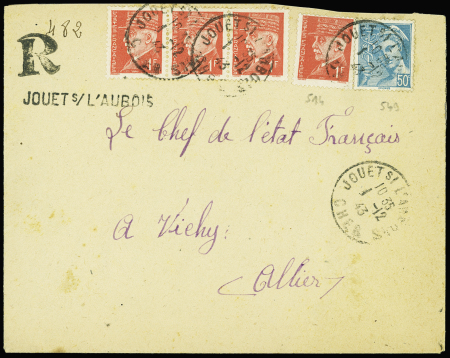 482
R
JOUET S/ L'AUBOIS
1F
50c
514
549
Le Chef de l'état Français
JOUET S/ L'AUBOIS
10 35
1-12
43
CHER
A Vichy
Allier